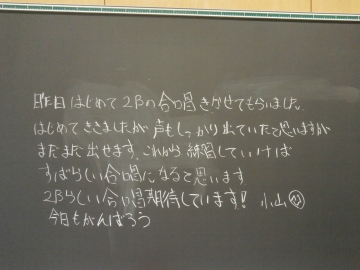 昨日はじめて2Bの合唱きかせてもらいました。
はじめてききましたが声もしっかり出ていたと思いますが
まだまだ出せます。これから練習していけば
すばらしい合唱になると思います
2Bらしい合唱期待しています! 小山
今日もがんばろう